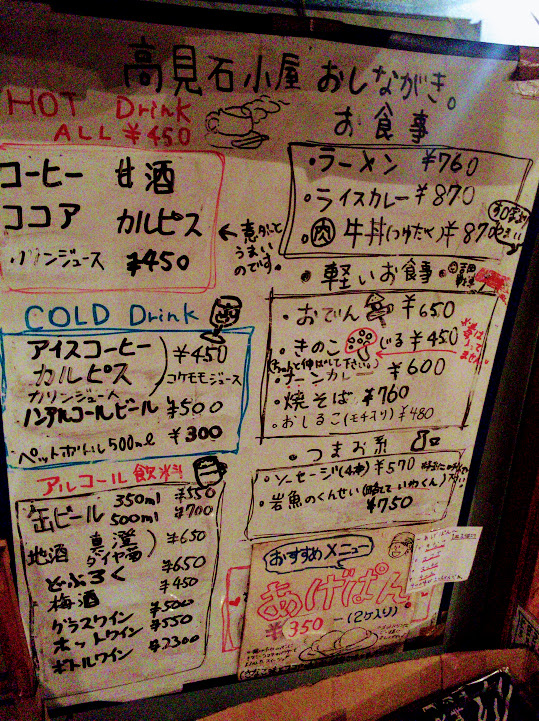 高見石小屋 おしながき。
HOT Drink
ALL ¥450
コーヒー 甘酒
ココア カルピス
カリンジュース ¥450
うまい
のです。
COLD Drink
アイスコーヒー ¥450
カルピス コケモモジュース
カリンジュース
ノンアルコールビール ¥500
ペットボトル500ml ¥300
アルコール飲料
缶ビール 350ml ¥550
500ml ¥700
地酒 真澄 ¥650
ダイヤ菊
どぶろく ¥650
梅酒 ¥450
グラスワイン ¥500
ホットワイン ¥550
ボトルワイン ¥2300
お食事
・ラーメン ¥760
・ライスカレー ¥870
・肉 牛丼(つゆだく) ¥870
・軽いお食事・
・おでん ¥650
・きのこじる ¥450
ナーンカレー ¥600
・焼そば ¥760
・おしるこ(モチ入り) ¥480
・つまみ系
・ソーセージ(4本) ¥570
・岩魚のくんせい(略していわくん)
¥750
おすすめメニュー
あげぱん
¥350 (2ケ入り)